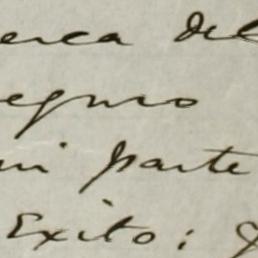 erca del
eguro
mi parte
Exito; y